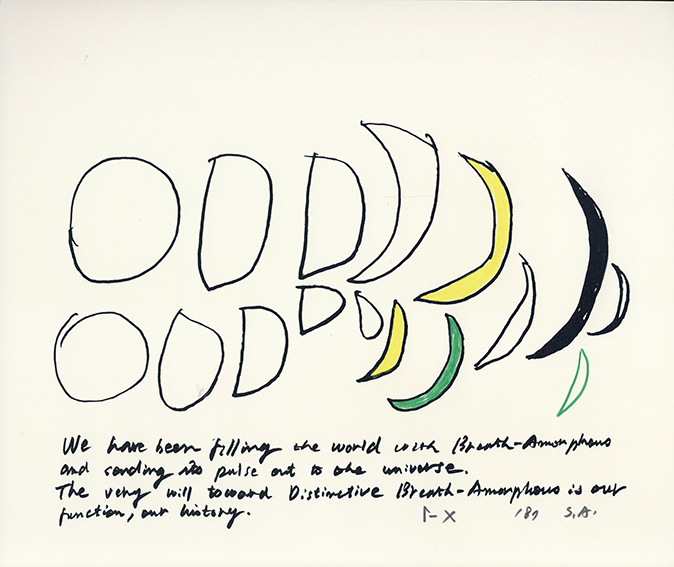 We have been filling the world with Breath-Amorphous
and sending its pulse out to the universe.
The very will toward Distinctive Breath-Amorphous is our
function, our history.
I-X '87 S.A.